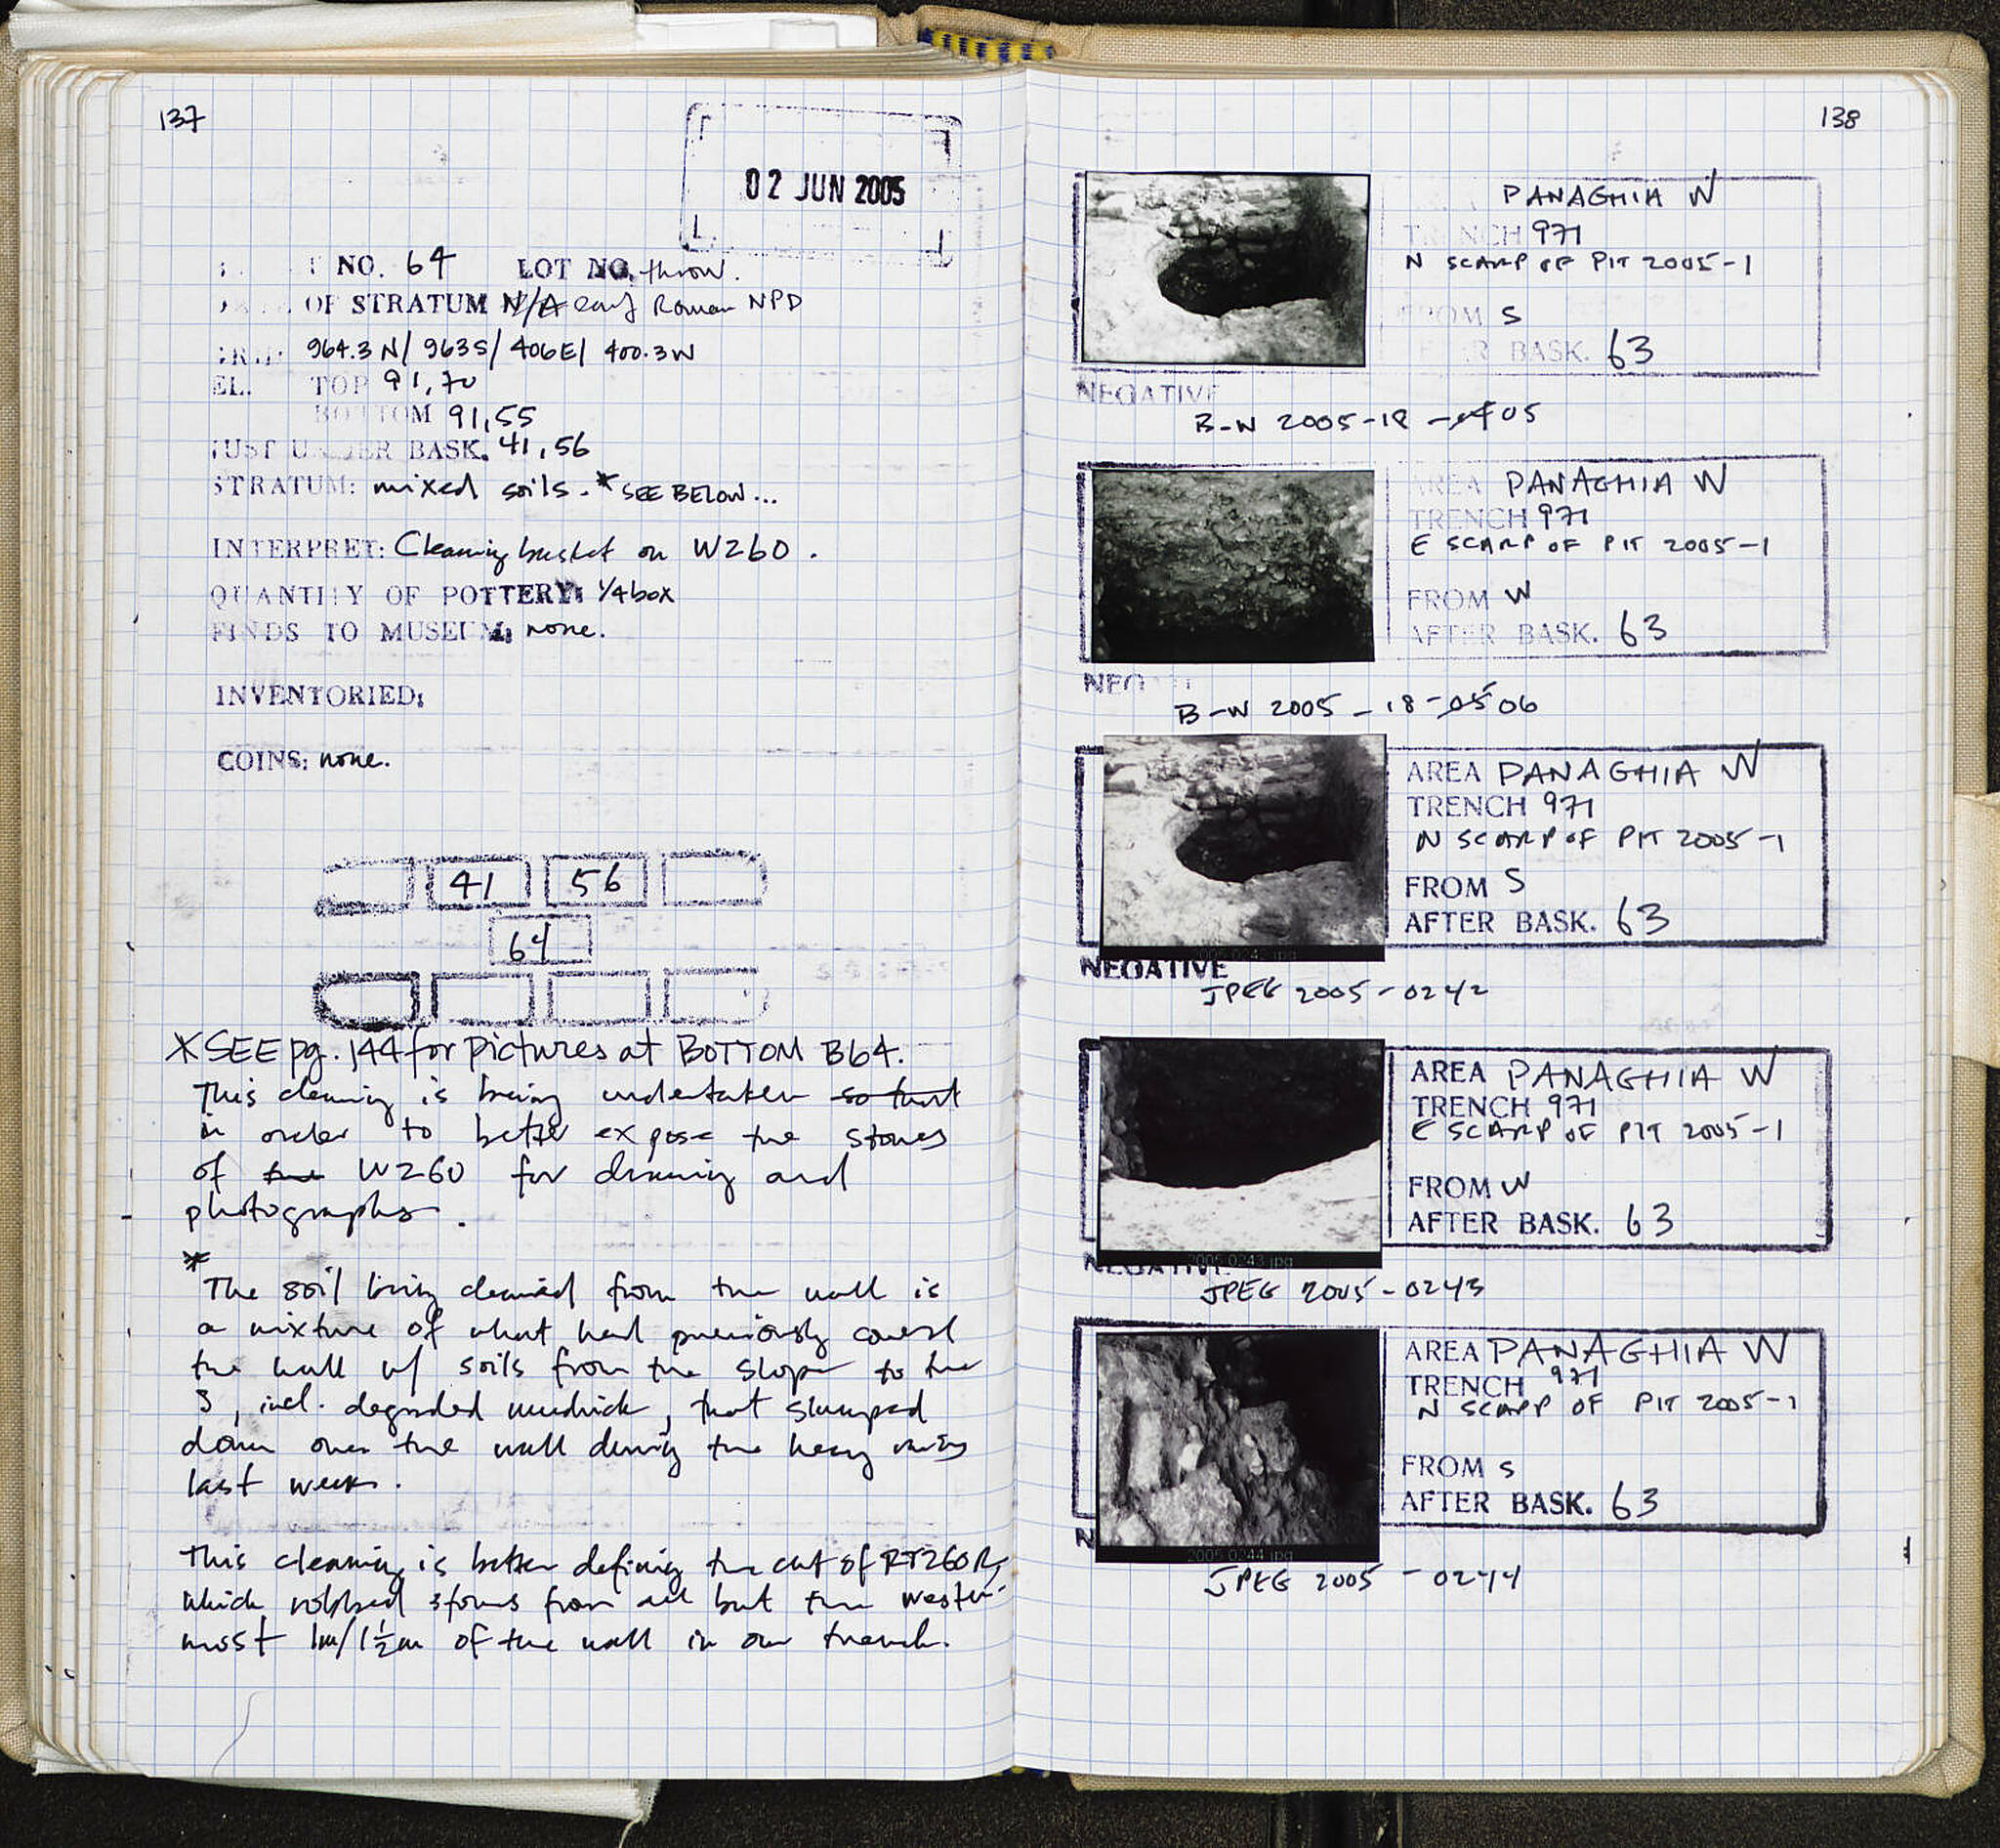 137
02 JUN 2005
NO. 64 LOT NO. throw.
OF STRATUM N/A early Roman NPD
964.3 N/ 963 S/ 406 E/ 400.3 W
EL. TOP 91,70
BOTTOM 91,55
JUST UNDER BASK. 41, 56
STRATUM: mixed soils. * SEE BELOW...
INTERPRET: Cleaning basket on W260.
QUANTITY OF POTTERY: 1/4 box
FINDS TO MUSEUM: none.
INVENTORIED:
COINS: none.
41 56
64
* SEE pg. 144 for pictures at BOTTOM B64.
This cleaning is being undertaken so that
in order to better expose the stones
of the W260 for drawing and
photographs.
*
The soil being cleaned from the wall is
a mixture of what had previously covered
the wall w/ soils from the slope to the
S, incl. degraded mudbrick, that slumped
down over the wall during the heavy rains
last week.
This cleaning is better defining the cut of RT260R,
which robbed stones from all but the western-
most 1m/1½m of the wall in our trench.
138
PANAGHIA W
TRENCH 971
N SCARP OF PIT 2005-1
FROM S
AFTER BASK. 63
NEGATIVE
B-W 2005-18-04 05
AREA PANAGHIA W
TRENCH 971
E SCARP OF PIT 2005-1
FROM W
AFTER BASK. 63
NEG
B-W 2005-18-05 06
AREA PANAGHIA W
TRENCH 971
N SCARP OF PIT 2005-1
FROM S
AFTER BASK. 63
NEGATIVE
JPEG 2005-0242
AREA PANAGHIA W
TRENCH 971
E SCARP OF PIT 2005-1
FROM W
AFTER BASK. 63
2005 0243.jpg
NEGATIVE
JPEG 2005-0243
AREA PANAGHIA W
TRENCH 971
N SCARP OF PIT 2005-1
FROM S
AFTER BASK. 63
2005 0244.jpg
N
JPEG 2005-0244